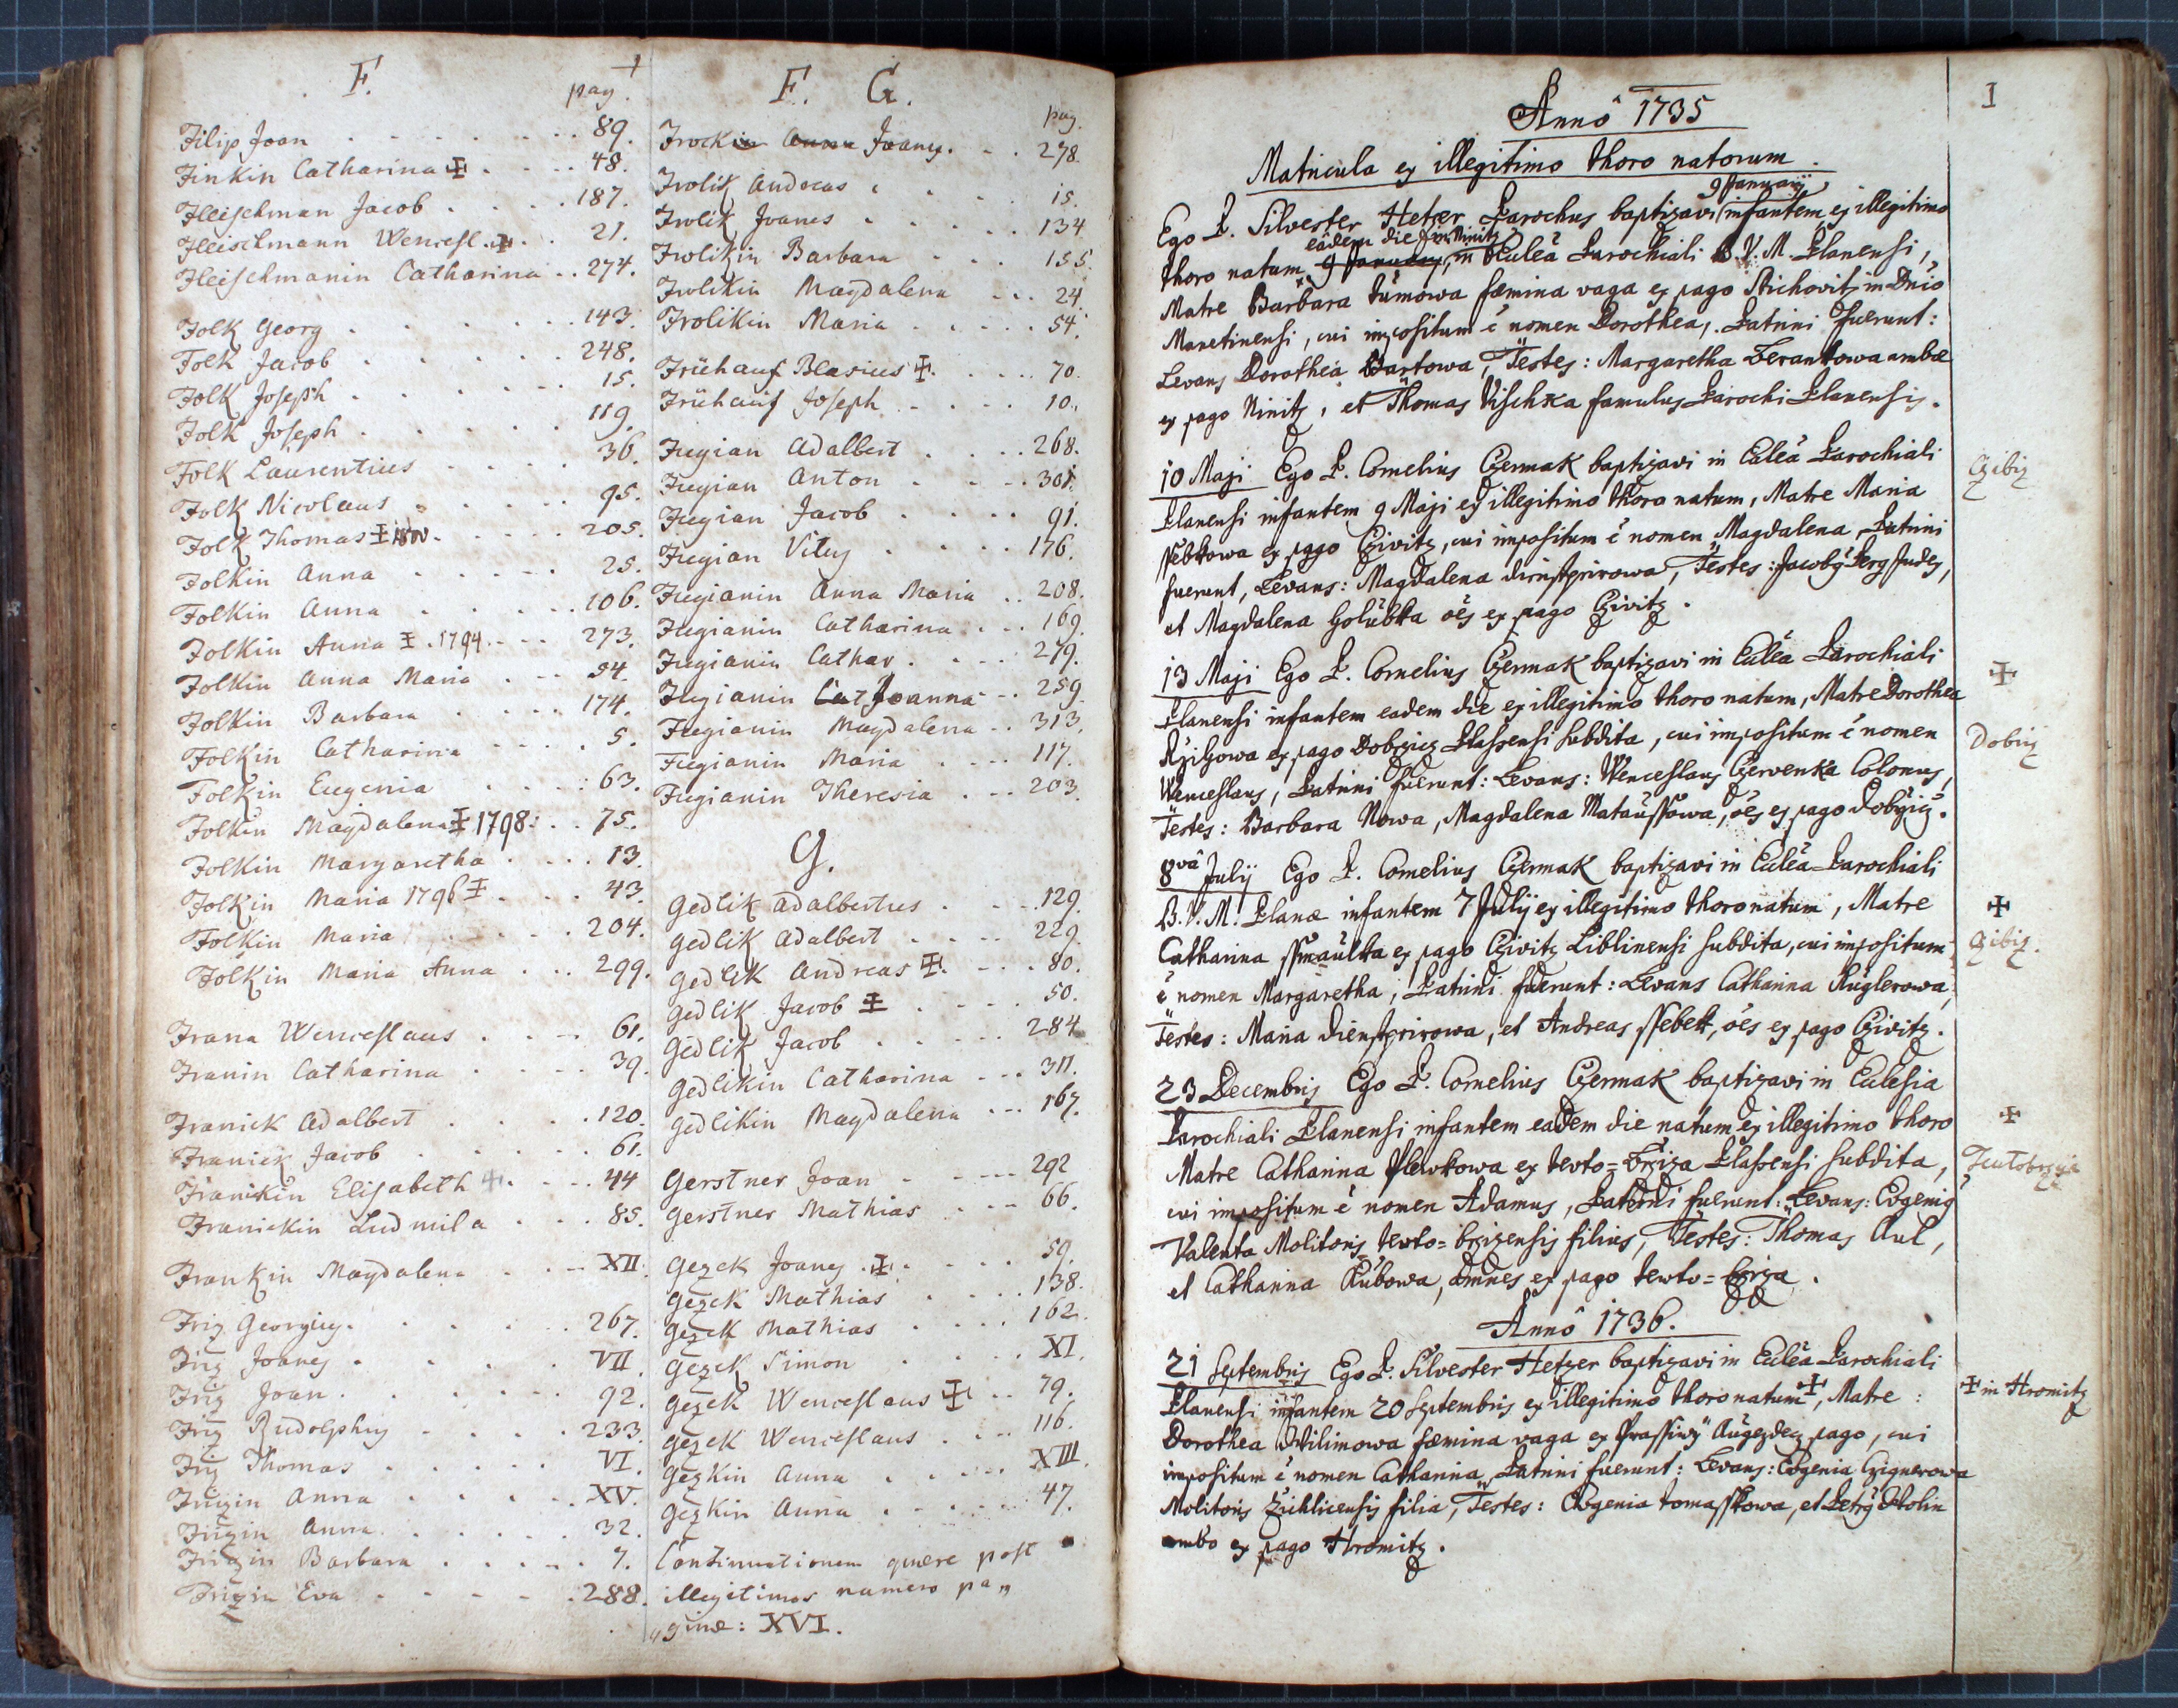 F.
pag.
Filip Joan 89.
Finkin Catharina ✠ 48.
Fleischman Jacob 187.
Fleischmann Wencesl. ✠ 21.
Fleischmanin Catharina 274.
Folk Georg 143.
Folk Jacob 248.
Folk Joseph 15.
Folk Joseph 119.
Folk Laurentius 36.
Folk Nicolaus 95.
Folk Thomas ✠ 205.
Folkin Anna 25.
Folkin Anna 106.
Folkin Anna ✠. 1794. 273.
Folkin Anna Maria 54.
Folkin Barbara 174.
Folkin Catharina 5.
Folkin Eugenia 63.
Folkin Magdalena ✠ 1798: 75.
Folkin Margaretha 13.
Folkin Maria 1796 ✠ 43.
Folkin Maria 204.
Folkin Maria Anna 299.
Frana Wenceslaus 61.
Franin Catharina 39.
Franiek Adalbert 120.
Franiek Jacob 61.
Franikin Elisabeth ✠ 44
Franickin Ludmila 85.
Frankin Magdalena XII.
Friz Georgius 267.
Friz Joanes VII.
Friz Joan 92.
Friz Rudolphus 233.
Friz Thomas VI.
Frizin Anna XV.
Frizin Anna 32.
Frizin Barbara 7.
Frizin Eva 288.
F. G.
pag.
Frockin Anna Joanes 278.
Frolik Andreas 15.
Frolik Joanes 134
Frolikin Barbara 155.
Frolikin Magdalena 24.
Frolikin Maria 54.
Frühauf Blasius ✠ 70.
Frühauf Joseph 10.
Fugian Adalbert 268.
Fugian Anton 301.
Fugian Jacob 91.
Fugian Vitus 176.
Fugianin Anna Maria 208.
Fugianin Catharina 169.
Fugianin Cathar. 279.
Fugianin Cat Joanna 259.
Fugianin Magdalena 313.
Fugianin Maria 117.
Fugianin Theresia 203.
G.
Gedlik Adalbertus 129.
Gedlik Adalbert 229.
Gedlik Andreas ✠ 80.
Gedlik Jacob ✠ 50.
Gedlik Jacob 284
Gedlikin Catharina 311.
Gedlikin Magdalena 167.
Gerstner Joan 292
Gerstner Mathias 66.
Gezek Joanes ✠ 59.
Gezek Mathias 138.
Gezek Mathias 162.
Gezek Simon XI.
Gezek Wenceslaus ✠ 79.
Gezek Wenceslaus 116.
Gezkin Anna XIII.
Gezkin Anna 47.
Continuationem quære post
illegitimos numero pa„
„ginæ: XVI.
I
Annô 1735
Matricula ex illegitimo thoro natorum.
9 January
Ego P. Silvester Hetzer Parochus baptizavi infantem ex illegitimo
eâdem die in Ninitz
thoro natum, 9 January, in Ecclêa Parochiali B.V.M. Planensi,
Matre Barbara Tumowa fæmina vaga ex pago Stichowitz in Dnio
Manetinensi, cui impositum ê nomen Dorothea, Patrini fuerunt:
Levans Dorothea Bartowa, Testes: Margaretha Berankowa ambæ
ex pago Ninitz, et Thomas Vischka famulus Parochi Planensis.
10 Maji Ego P. Cornelius Czermak baptizavi in Ecclêa Parochiali
Planensi infantem 9 Maji ex illegitimo thoro natum, Matre Maria
ssebkowa ex pago Cziwitz, cui impositum ê nomen Magdalena, Patrini
fuerunt, Levans: Magdalena dinstpirowa, Testes: Jacobg Berg Judex,
et Magdalena Holubka oês ex pago Cziwitz.
Czibiz
13 Maji Ego P. Cornelius Czermak baptizavi in Ecclêa Parochiali
Planensi infantem eadem die ex illegitimo thoro natum, Matre Dorothea
Rzihowa ex pago Dobrzicz Plassensi subdita, cui impositum ê nomen
Wenceslaus, Patrini fuerunt: Levans: Wenceslaus Czerwenka Colonus,
Testes: Barbara Nowa, Magdalena Mataussowa, oês ex pago Dobrzicz.
✠
Dobriz
8vâ Julij Ego P. Cornelius Czermak baptizavi in Ecclêa Parochiali
B.V.M. Planæ infantem 7 Julij ex illegitimo thoro natum, Matre
Catharina ssmaulka ex pago Cziwitz Liblinensi subdita, cui impositum
ê nomen Margaretha, Patrini fuerunt: Levans Catharina Kuglerowa,
Testes: Maria dienstpirowa, et Andreas ssebek, oês ex pago Cziwitz.
✠
Czibiz.
23 Decembris Ego P. Cornelius Czermak baptizavi in Ecclesia
Parochiali Planensi infantem eadem die natum ex illegitimo thoro
Matre Catharina Plewkowa ex tewto=brziza Plassensi subdita,
cui impositum ê nomen Adamus, Patrini fuerunt: Levans: Evgenig
Valenta Molitoris tewto=brzizensis filius, Testes: Thomas Aul,
et Catharina Kubowa, omnes ex pago tewto=brziza.
✠
Annô 1736.
21 Septembris Ego P. Silvester Hetzer baptizavi in Ecclêa Parochiali
Planensi infantem 20 Septembris ex illegitimo thoro natum ✠, Matre
Dorothea Wilimowa fæmina vaga ex Prassiwÿ Augezdecz pago, cui
impositum ê nomen Catharina, Patrini fuerunt: Levans: Evgenia Czignerowa
Molitoris Zichlicensis filia, Testes: Evgenia tomasskowa, et Petrg Holin
ambo ex pago Hromitz.
✠ in Hromitz